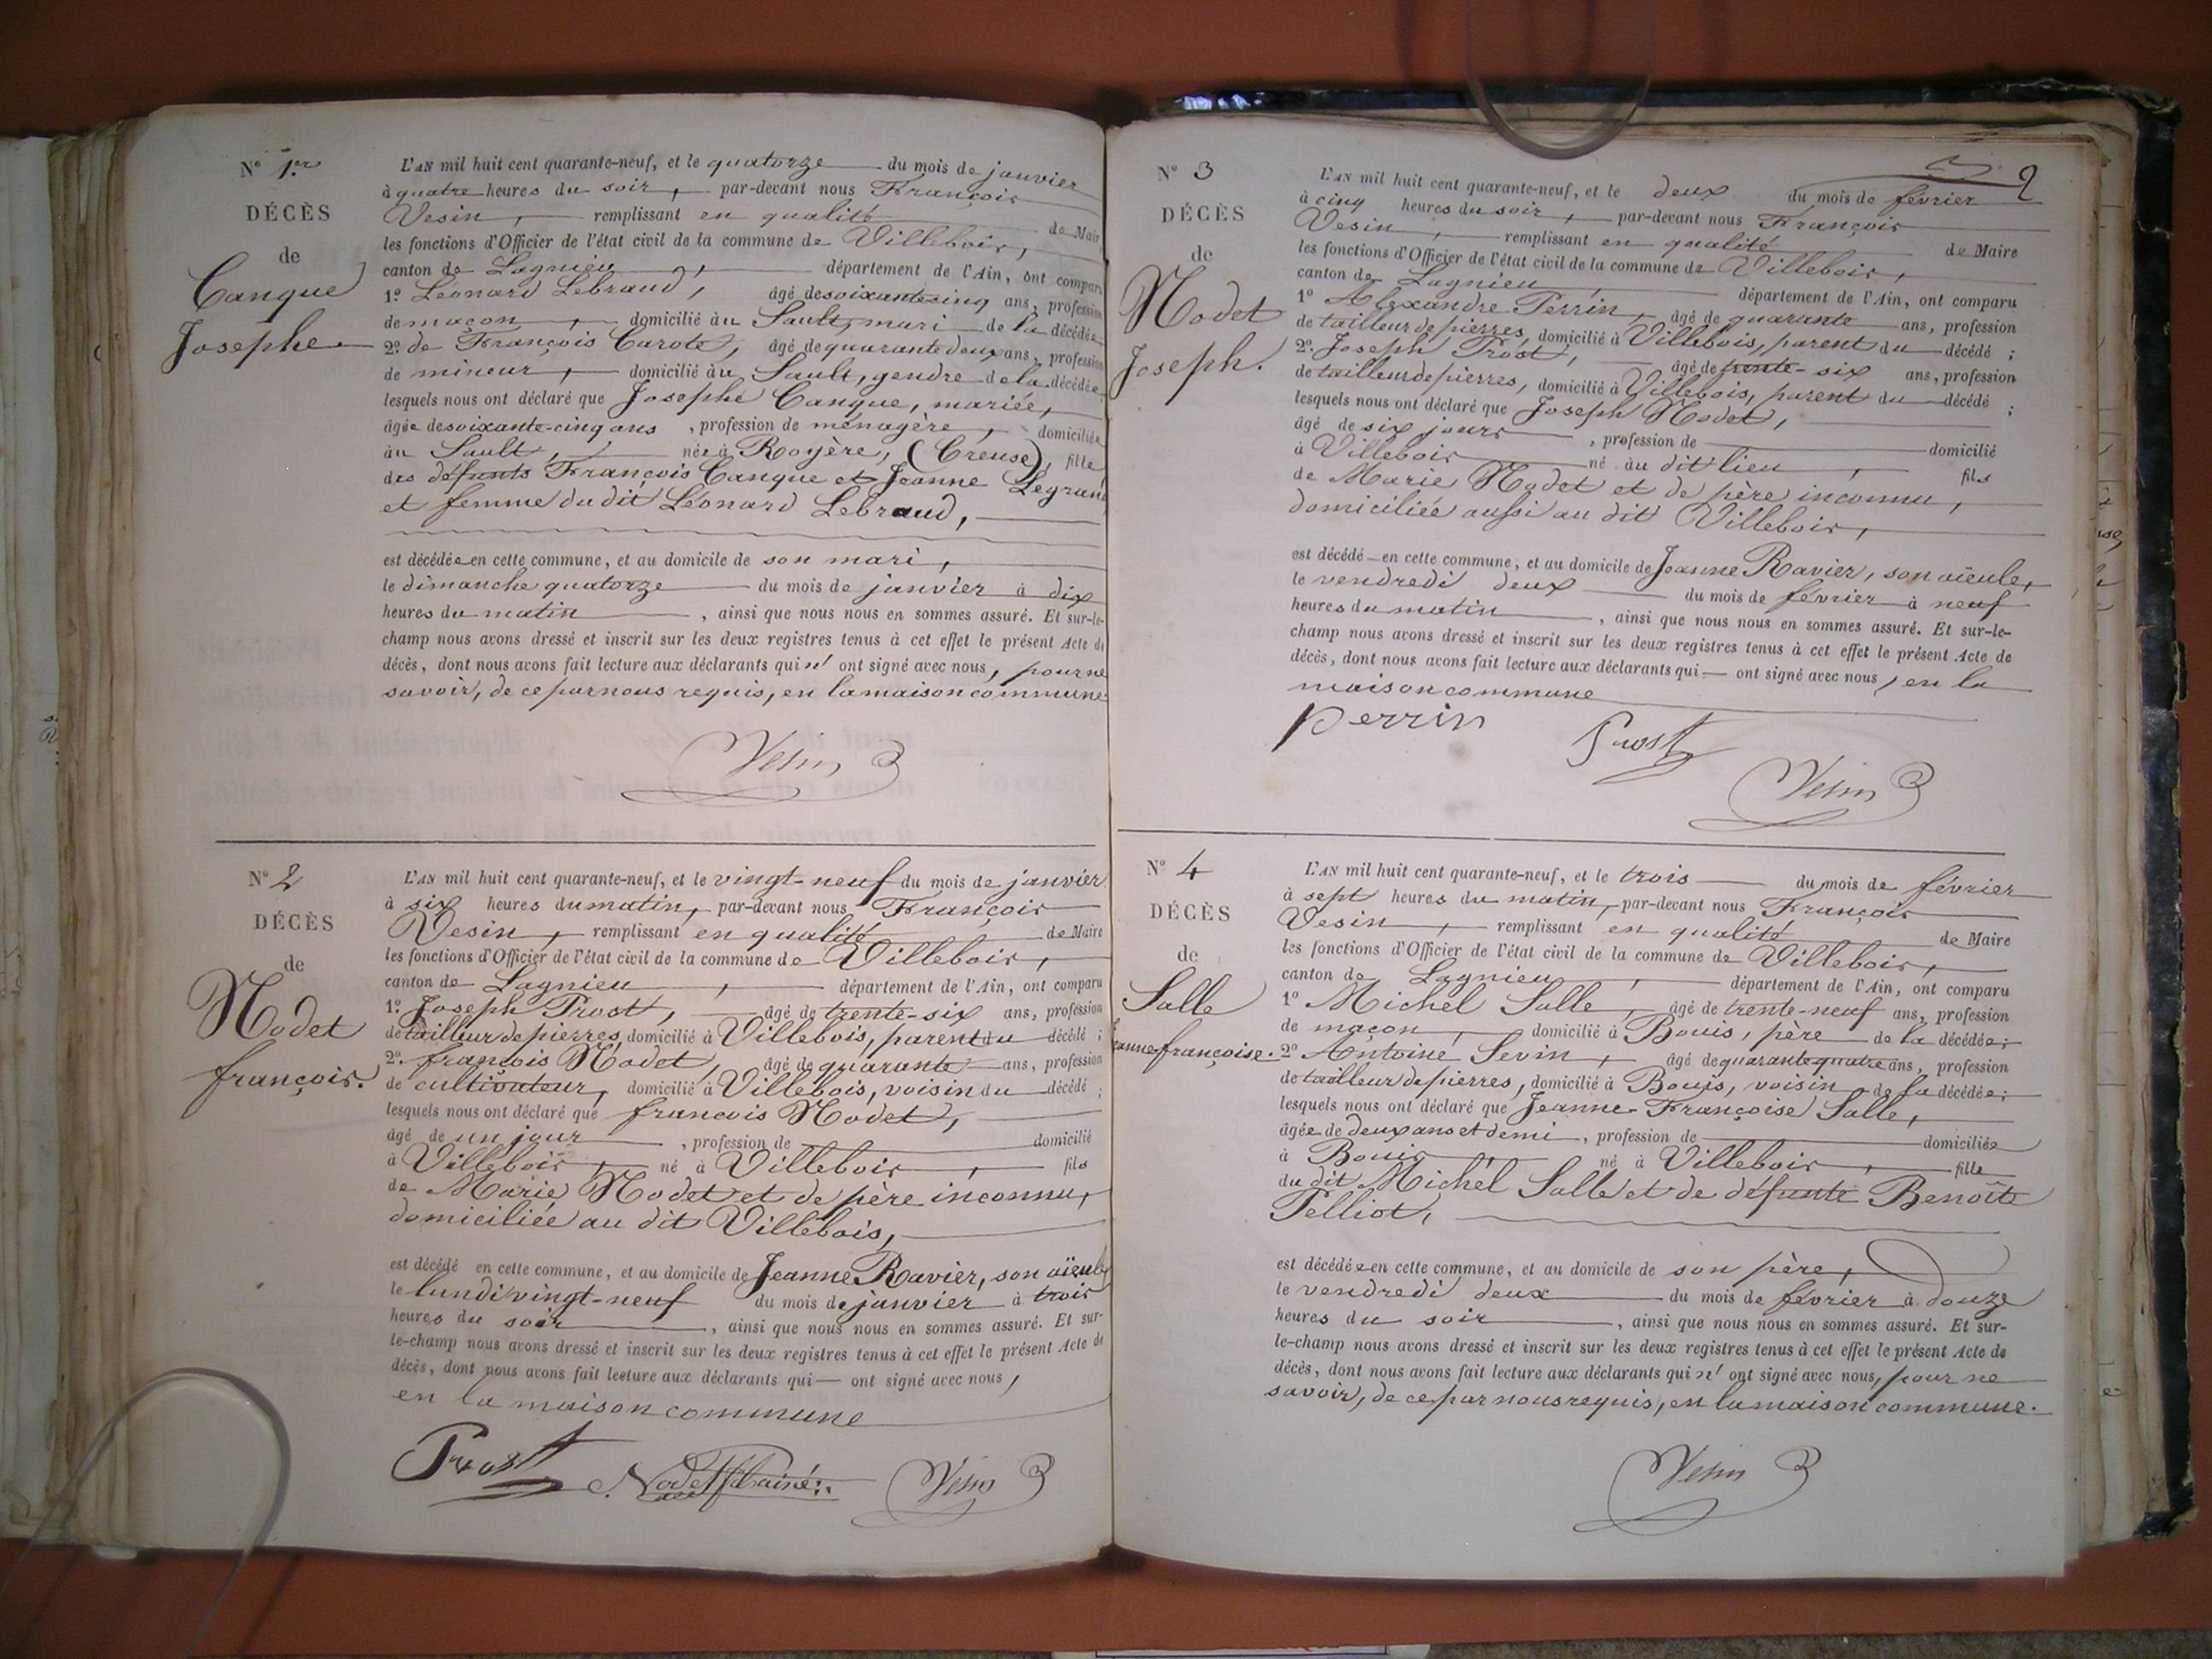 N° 1.er
DÉCÈS
de
Canque
Josephe
L'AN mil huit cent quarante-neuf, et le quatorze du mois de janvier
à quatre heures du soir, par-devant nous François
Vesin, remplissant en qualité de Mair
les fonctions d'Officier de l'état civil de la commune de Villebois,
canton de Lagnieu, département de l'Ain, ont comparu
1° Léonard Lebraud, âgé de soixante-cinq ans, profession
de maçon, domicilié au Sault, mari de la décédée
2° de François Carote, âgé de quarante deux ans, profession
de mineur, domicilié au Sault, gendre de la décédée
lesquels nous ont déclaré que Josephe Canque, mariée,
âgée de soixante-cinq ans, profession de ménagère, domiciliée
au Sault, née à Royère, (Creuse), fille
des défunts François Canque et Jeanne Legrand
et femme du dit Léonard Lebraud,
est décédée en cette commune, et au domicile de son mari,
le dimanche quatorze du mois de janvier à dix
heures du matin, ainsi que nous nous en sommes assuré. Et sur-le-
champ nous avons dressé et inscrit sur les deux registres tenus à cet effet le présent Acte de
décès, dont nous avons fait lecture aux déclarants qui n' ont signé avec nous, pour ne
savoir, de ce par nous requis, en la maison commune
Vesin
N° 2
DÉCÈS
de
Nodet
françois.
L'AN mil huit cent quarante-neuf, et le vingt-neuf du mois de janvier
à six heures du matin, par-devant nous François
Vesin, remplissant en qualité de Maire
les fonctions d'Officier de l'état civil de la commune de Villebois,
canton de Lagnieu, département de l'Ain, ont comparu
1° Joseph Prost, âgé de trente-six ans, profession
de tailleur de pierres, domicilié à Villebois, parent du décédé ;
2° françois Nodet, âgé de quarante ans, profession
de cultivateur, domicilié à Villebois, voisin du décédé ;
lesquels nous ont déclaré que françois Nodet,
âgé de un jour, profession de domicilié
à Villebois, né à Villebois, fils
de Marie Nodet et de père inconnu,
domiciliée au dit Villebois,
est décédé en cette commune, et au domicile de Jeanne Ravier, son aïeule
le lundi vingt-neuf du mois de janvier à trois
heures du soir, ainsi que nous nous en sommes assuré. Et sur-
le-champ nous avons dressé et inscrit sur les deux registres tenus à cet effet le présent Acte de
décès, dont nous avons fait lecture aux déclarants qui — ont signé avec nous,
en la maison commune
Prost Nodet fils ainé Vesin
N° 3
2
DÉCÈS
de
Nodet
Joseph.
L'AN mil huit cent quarante-neuf, et le deux du mois de février
à cinq heures du soir, par-devant nous François
Vesin, remplissant en qualité de Maire
les fonctions d'Officier de l'état civil de la commune de Villebois,
canton de Lagnieu, département de l'Ain, ont comparu
1° Alexandre Perrin, âgé de quarante ans, profession
de tailleur de pierres, domicilié à Villebois, parent du décédé ;
2° Joseph Prost, âgé de trente-six ans, profession
de tailleur de pierres, domicilié à Villebois, parent du décédé ;
lesquels nous ont déclaré que Joseph Nodet,
âgé de six jours, profession de domicilié
à Villebois né au dit lieu, fils
de Marie Nodet et de père inconnu,
domiciliée aussi au dit Villebois,
est décédé en cette commune, et au domicile de Jeanne Ravier, son aïeule,
le vendredi deux du mois de février à neuf
heures du matin, ainsi que nous nous en sommes assuré. Et sur-le-
champ nous avons dressé et inscrit sur les deux registres tenus à cet effet le présent Acte de
décès, dont nous avons fait lecture aux déclarants qui — ont signé avec nous, en la
maison commune
perrin Prost
Vesin
N° 4
DÉCÈS
de
Salle
Jeanne françoise.
L'AN mil huit cent quarante-neuf, et le trois du mois de février
à sept heures du matin, par-devant nous François
Vesin, remplissant en qualité de Maire
les fonctions d'Officier de l'état civil de la commune de Villebois,
canton de Lagnieu, département de l'Ain, ont comparu
1° Michel Salle, âgé de trente-neuf ans, profession
de maçon, domicilié à Bouis, père de la décédée ;
2° Antoine Sevin, âgé de quarante quatre ans, profession
de tailleur de pierres, domicilié à Bouis, voisin de la décédée ;
lesquels nous ont déclaré que Jeanne-Françoise Salle,
âgée de deux ans et demi, profession de domiciliée
à Bouis, né à Villebois, fille
du dit Michel Salle et de défunte Benoîte
Pelliot,
est décédée en cette commune, et au domicile de son père,
le vendredi deux du mois de février à douze
heures du soir, ainsi que nous nous en sommes assuré. Et sur-
le-champ nous avons dressé et inscrit sur les deux registres tenus à cet effet le présent Acte de
décès, dont nous avons fait lecture aux déclarants qui n' ont signé avec nous, pour ne
savoir, de ce par nous requis, en la maison commune.
Vesin